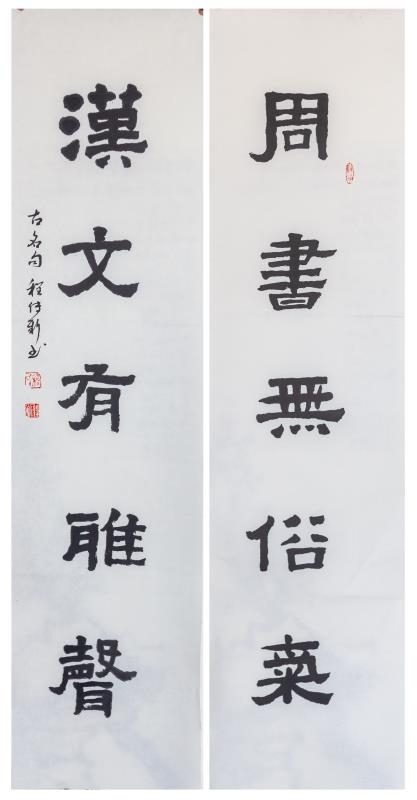 周書無俗氣
漢文有雅聲
古名句 程 新书